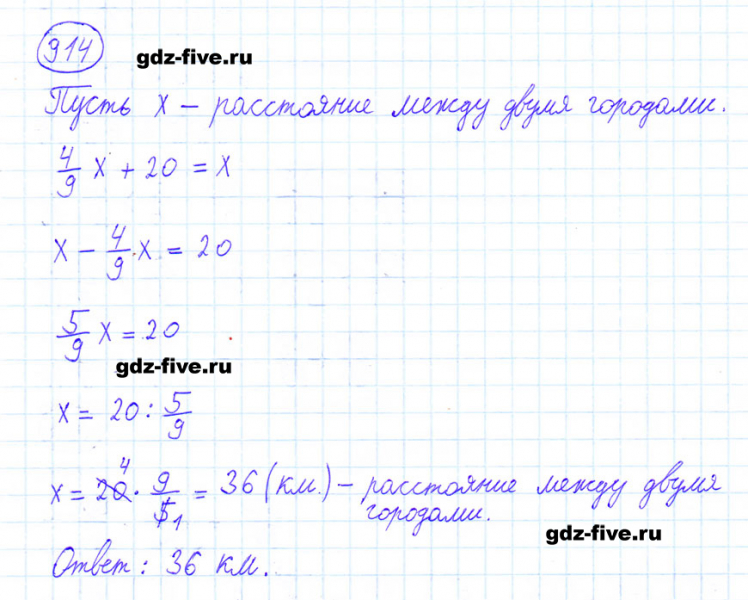 914
gdz-five.ru
Пусть x – расстояние между двумя городами.
4/9 x + 20 = x
x – 4/9 · x = 20
5/9 x = 20
gdz-five.ru
x = 20 : 5/9
4
x = 20 · 9/5 1 = 36 (км.) – расстояние между двумя
городами.
gdz-five.ru
Ответ: 36 км.